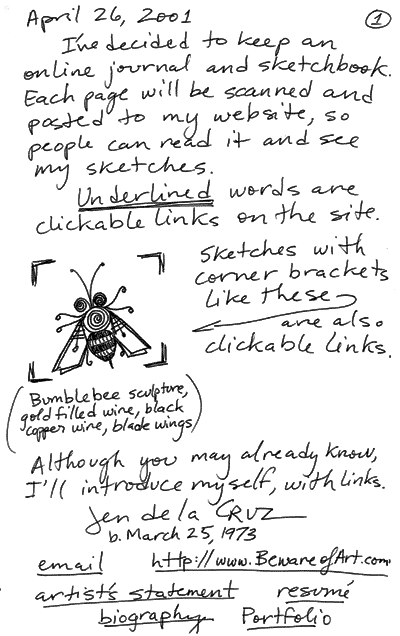 April 26, 2001 1
I've decided to keep an
online journal and sketchbook.
Each page will be scanned and
posted to my website, so
people can read it and see
my sketches.
Underlined words are
clickable links on the site.
Sketches with
corner brackets
like these
are also
clickable links.
(Bumblebee sculpture,
gold filled wire, black
copper wire, blade wings)
Although you may already know,
I'll introduce myself, with links.
Jen de la CRUZ
b. March 25, 1973
email http://www.BewareofArt.com
artist's statement resumé
biography Portfolio